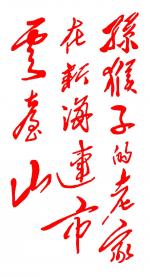 孫猴子的老家
在新海連市
雲臺山